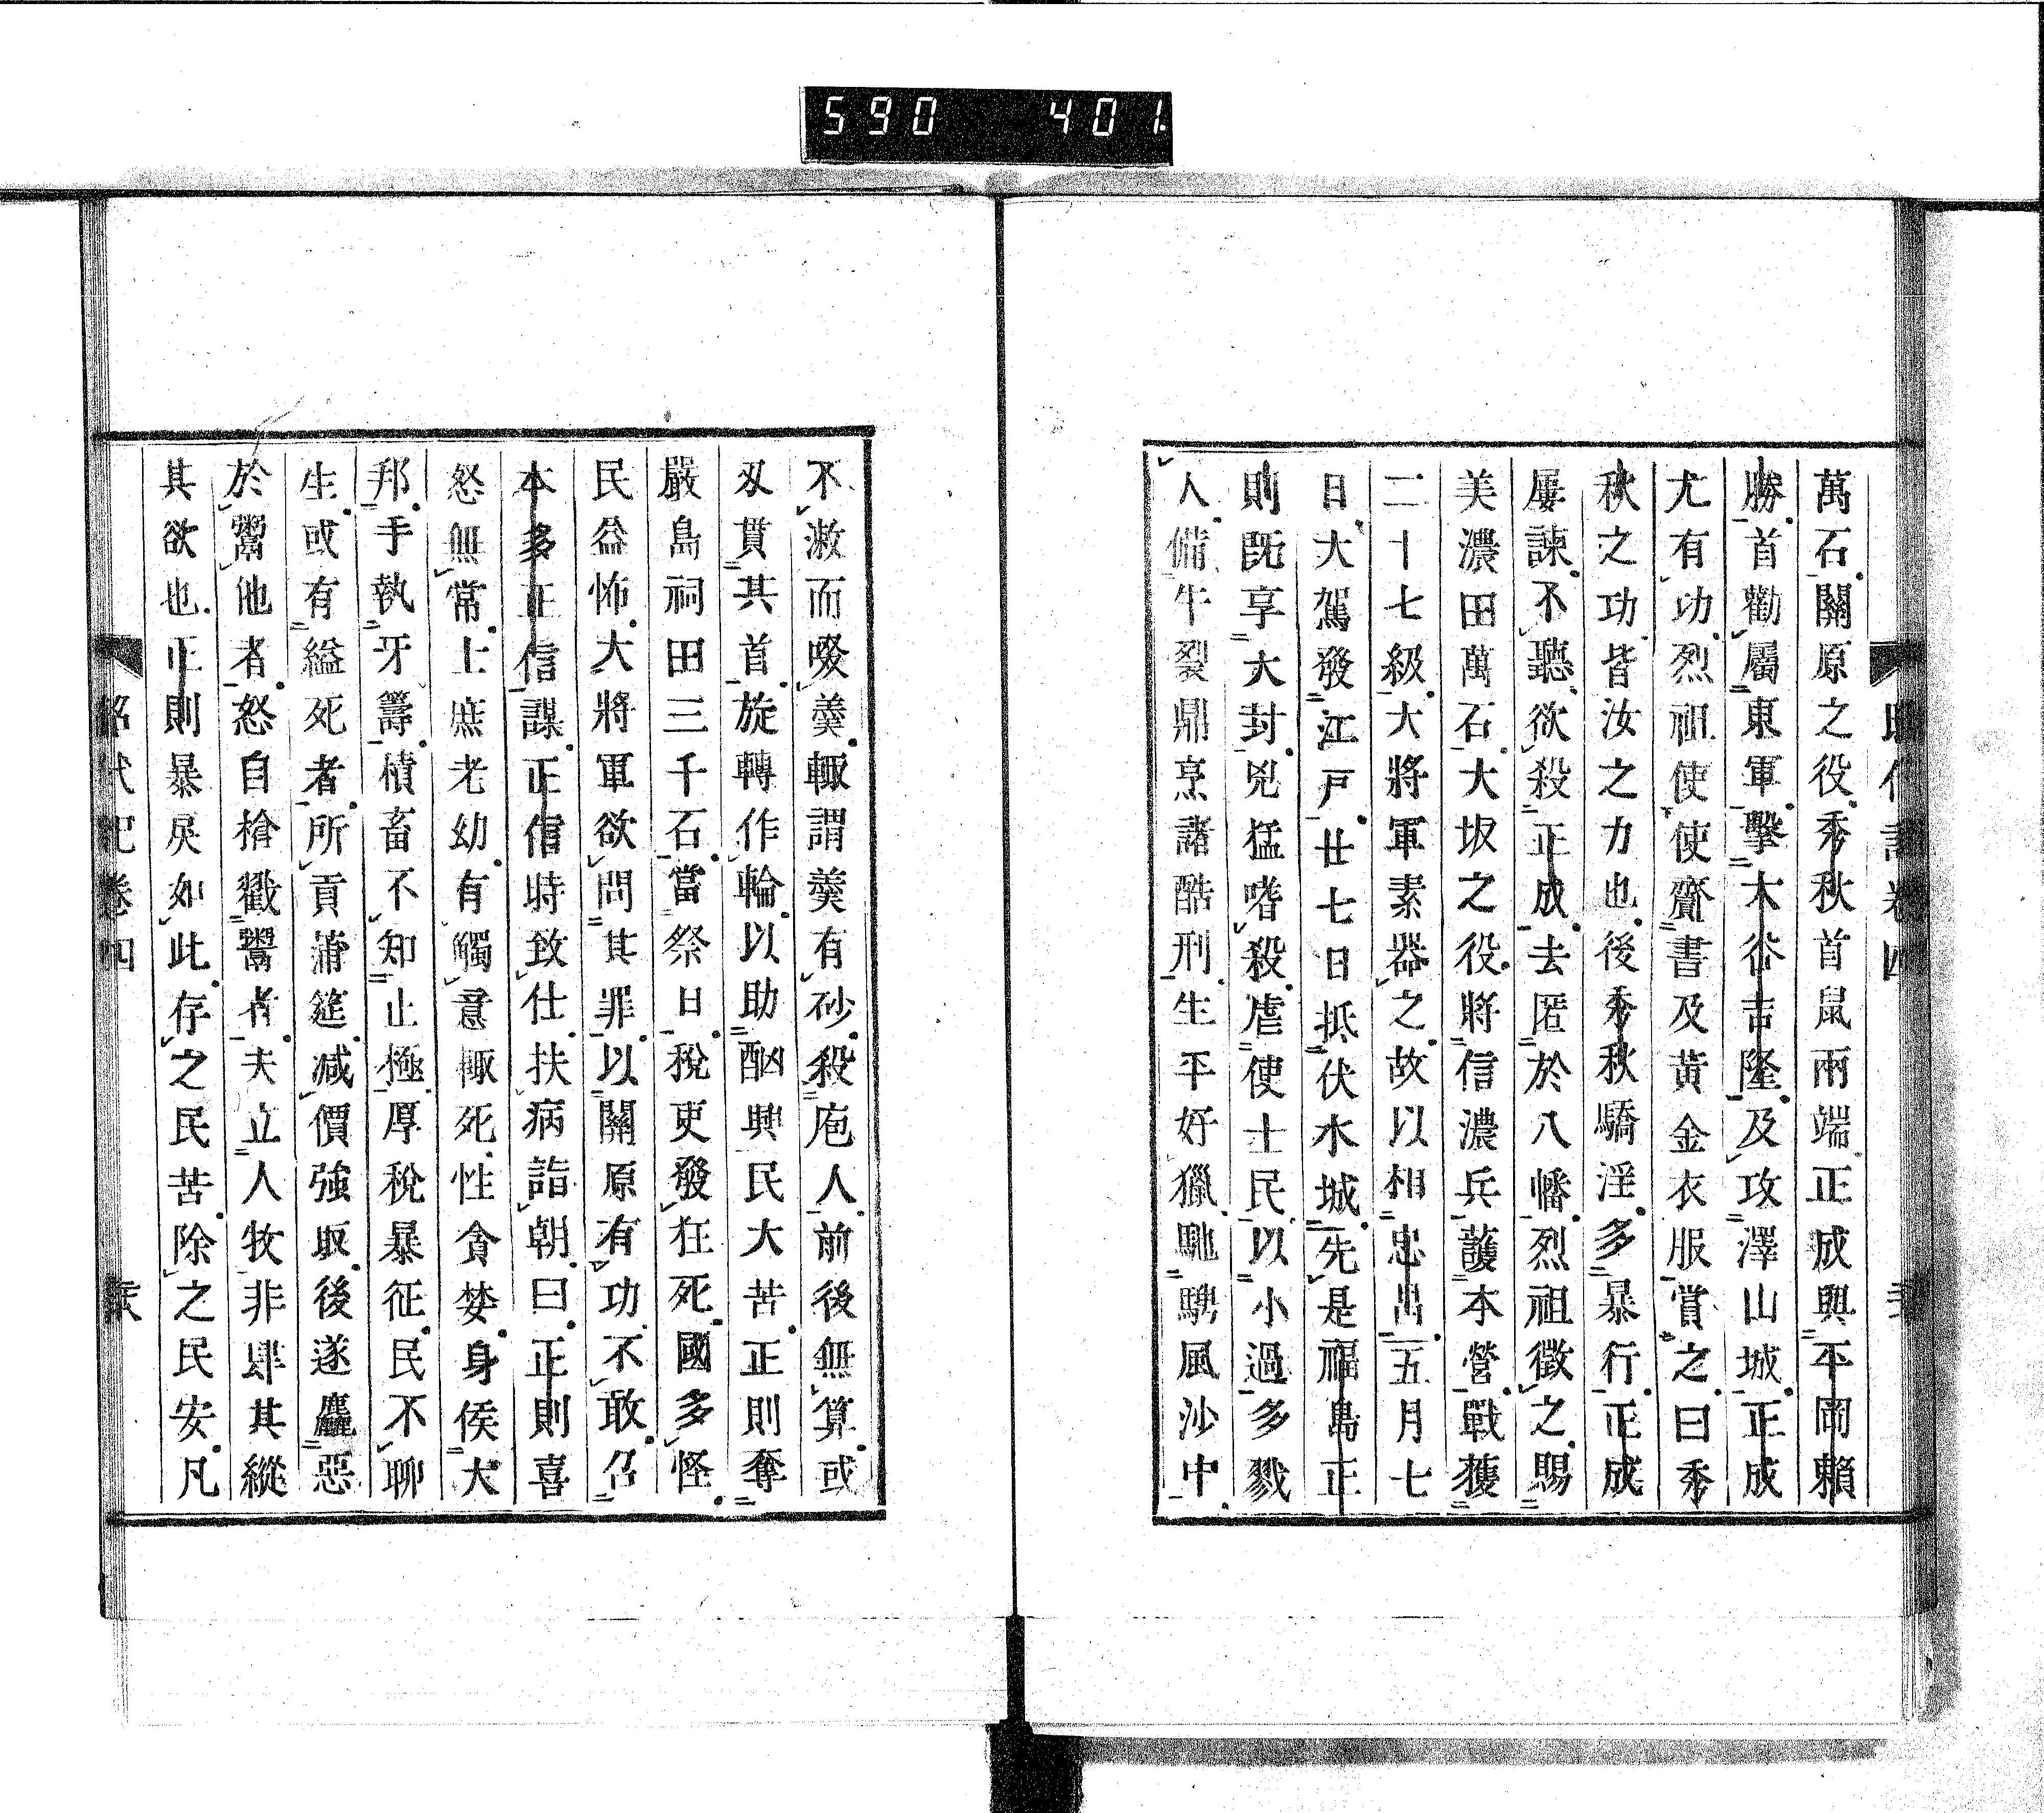 590 401
萬石關原之役秀秋首鼠兩端正成與平岡賴
勝首勸屬東軍擊大谷吉隆及攻澤山城正成
尤有功烈祖使使齎書及黃金衣服賞之曰秀
秋之功皆汝之力也後秀秋驕淫多暴行正成
屢諫不聽欲殺正成去匿於八幡烈祖徵之賜
美濃田萬石大坂之役將信濃兵護本營戰獲
二十七級大將軍素器之故以相忠出五月七
日大駕發江戸廿七日抵伏水城先是福島正
則旣享大封兇猛嗜殺虐使士民以小過多戮
人備牛裂鼎烹諸酷刑生平好獵馳騁風沙中
不漱而啜羹輙謂羹有砂殺庖人前後無算或
刄貫其首旋轉作輪以助酗興民大苦正則奪
嚴島祠田三千石當祭日稅吏發狂死國多怪
民益怖大將軍欲問其罪以關原有功不敢召
本多正信謀正信時致仕扶病詣朝曰正則喜
怒無常士庶老幼有觸意輙死性貪婪身侯大
邦手執牙籌積畜不知止極厚稅暴征民不聊
生或有縊死者所貢蒲筵減價強取後遂麤惡
於鬻他者怒自槍戳鬻者夫立人牧非肆其縱
其欲也正則暴戾如此存之民苦除之民安凡
卷四